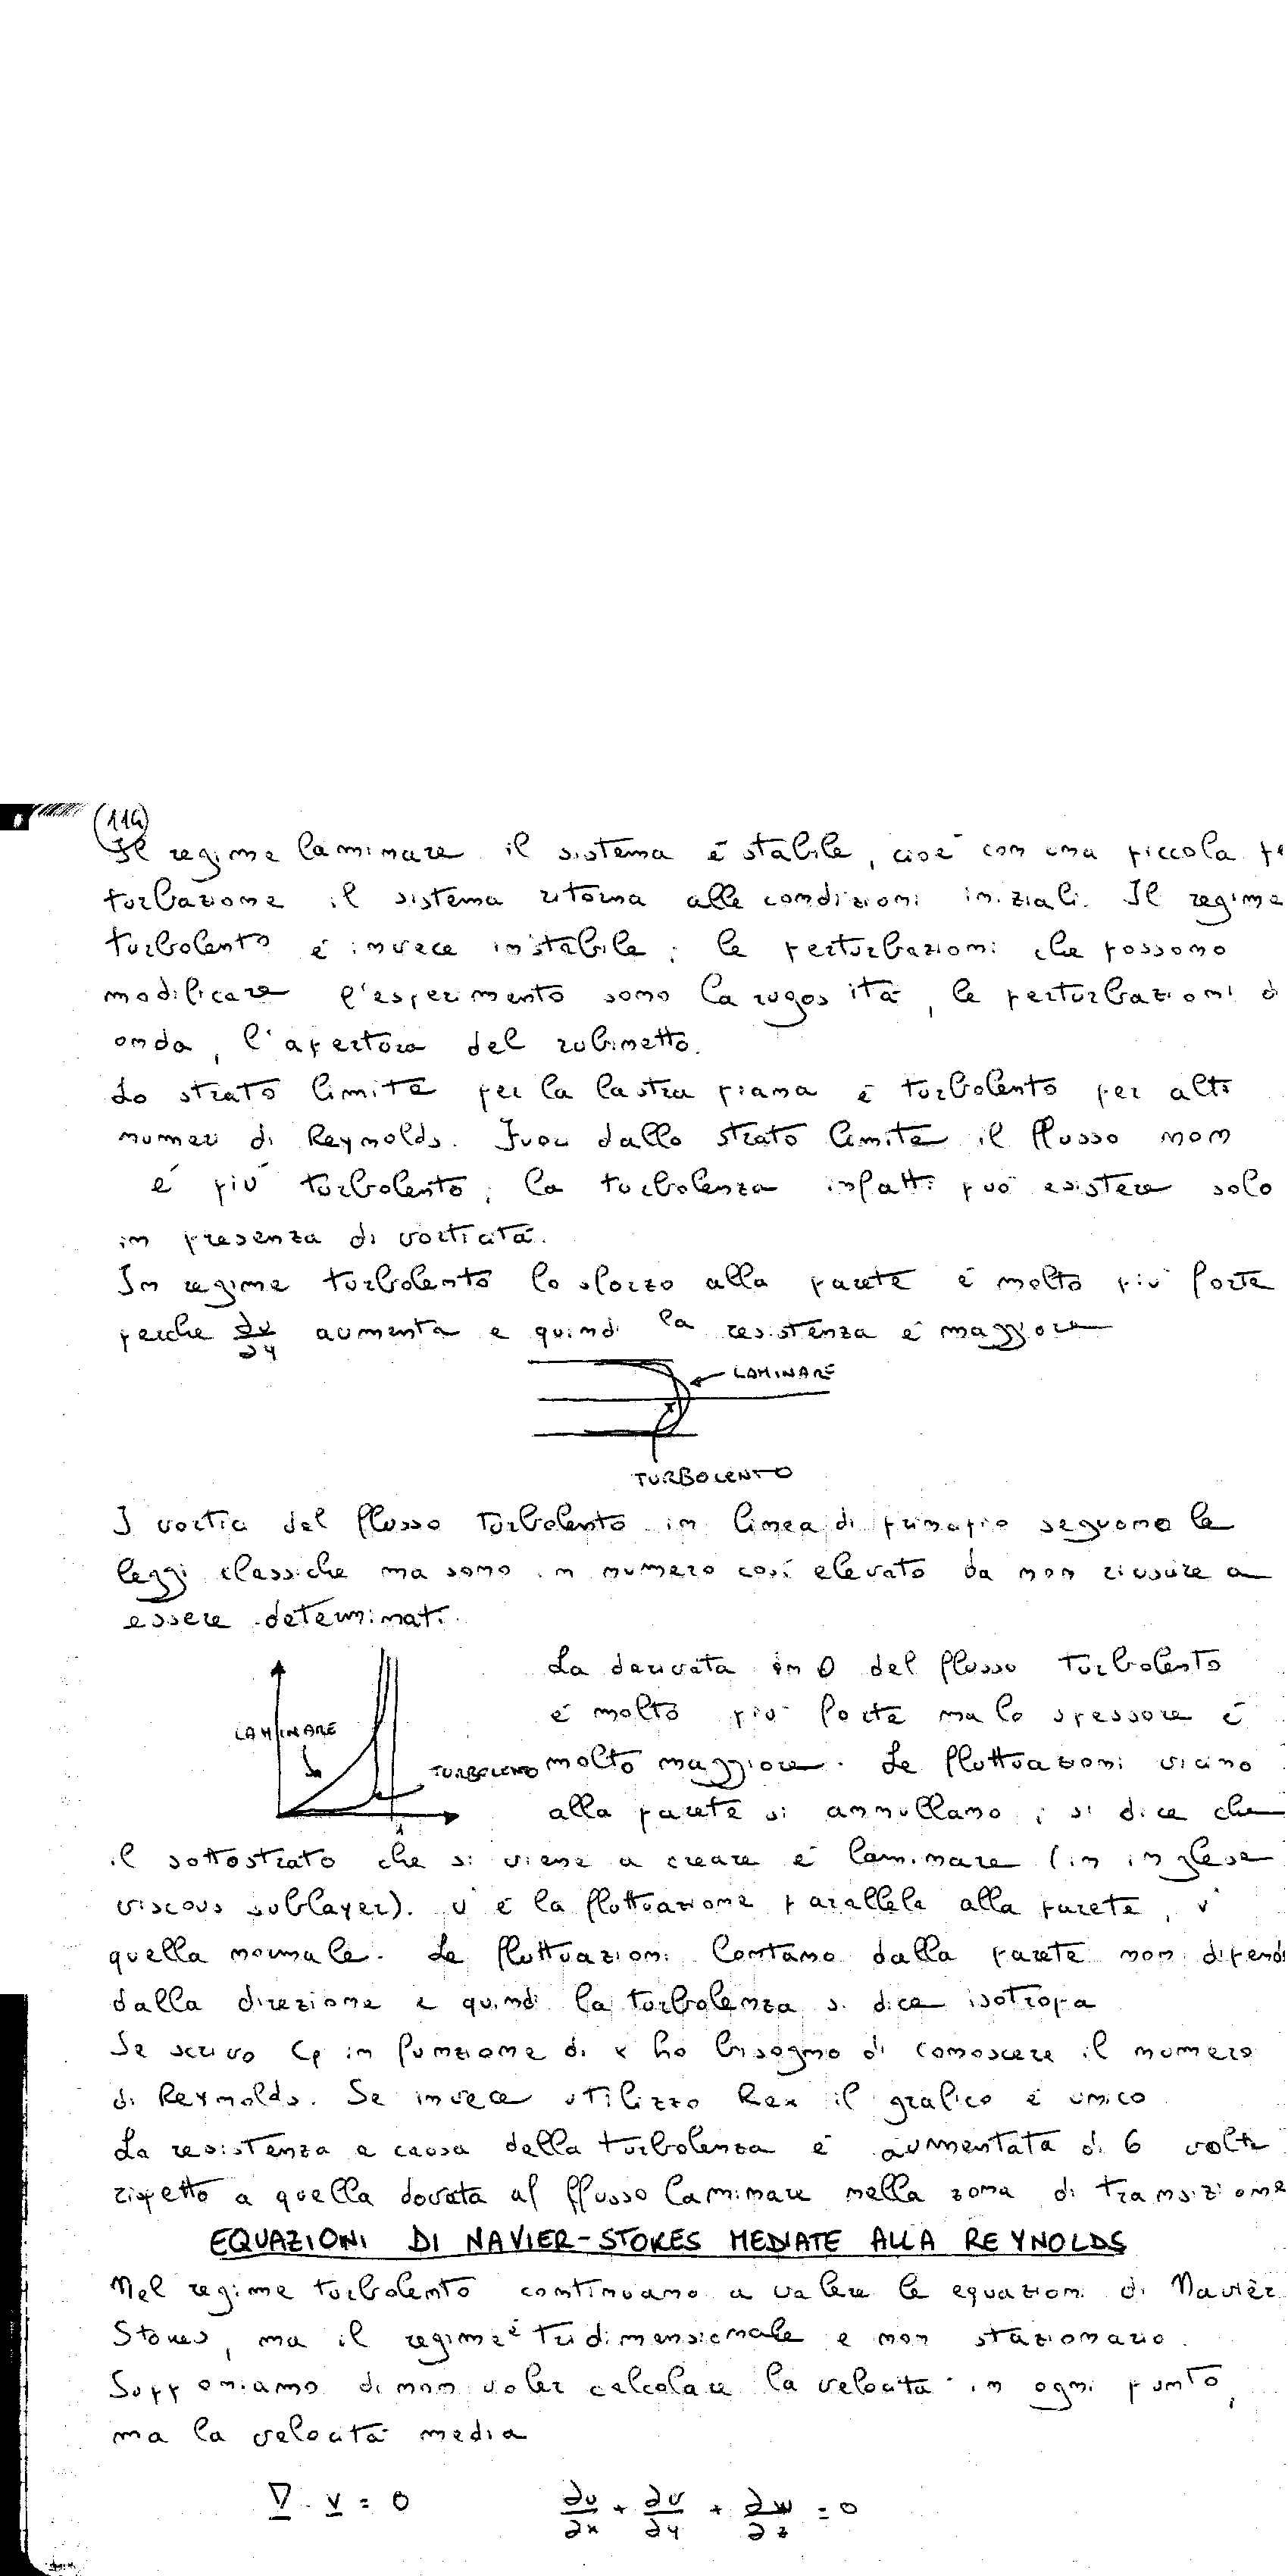 (114)
Il regime laminare il sistema è stabile, cioè con una piccola pe
turbazione il sistema ritorna alle condizioni iniziali. Il regime
turbolento è invece instabile; le perturbazioni che possono
modificare l'esperimento sono la rugosità, le perturbazioni d
onda, l'apertura del rubinetto.
Lo strato limite per la lastra piana è turbolento per alti
numeri di Reynolds. Fuori dallo strato limite il flusso non
è più turbolento; la turbolenza infatti può esistere solo
in presenza di vorticità.
In regime turbolento lo sforzo alla parete è molto più forte
perche ∂u/∂y aumenta e quindi la resistenza è maggiore
LAMINARE
TURBOLENTO
I vortici del flusso turbolento in linea di principio seguono le
leggi classiche ma sono in numero così elevato da non riuscire a
essere determinati.
La derivata in 0 del flusso turbolento
è molto più forte ma lo spessore è
LAMINARE
TURBOLENTO molto maggiore. Le fluttuazioni vicino
alla parete si annullano; si dice che
il sottostrato che si viene a creare è laminare (in inglese
viscous sublayer). u' è la fluttuazione parallela alla parete, v'
quella normale. Le fluttuazioni lontano dalla parete non dipend
dalla direzione e quindi la turbolenza si dice isotropa
Se scrivo Cf in funzione di x ho bisogno di conoscere il numero
di Reynolds. Se invece utilizzo Rex il grafico è unico
La resistenza a causa della turbolenza è aumentata di 6 volte
rispetto a quella dovuta al flusso laminare nella zona di transizione
EQUAZIONI DI NAVIER-STOKES MEDIATE ALLA REYNOLDS
Nel regime turbolento continuano a valere le equazioni di Navièr
Stokes, ma il regime è tridimensionale e non stazionario.
Supponiamo di non voler calcolare la velocità in ogni punto,
ma la velocità media
∇ · v = 0 ∂u/∂x + ∂v/∂y + ∂w/∂z = 0